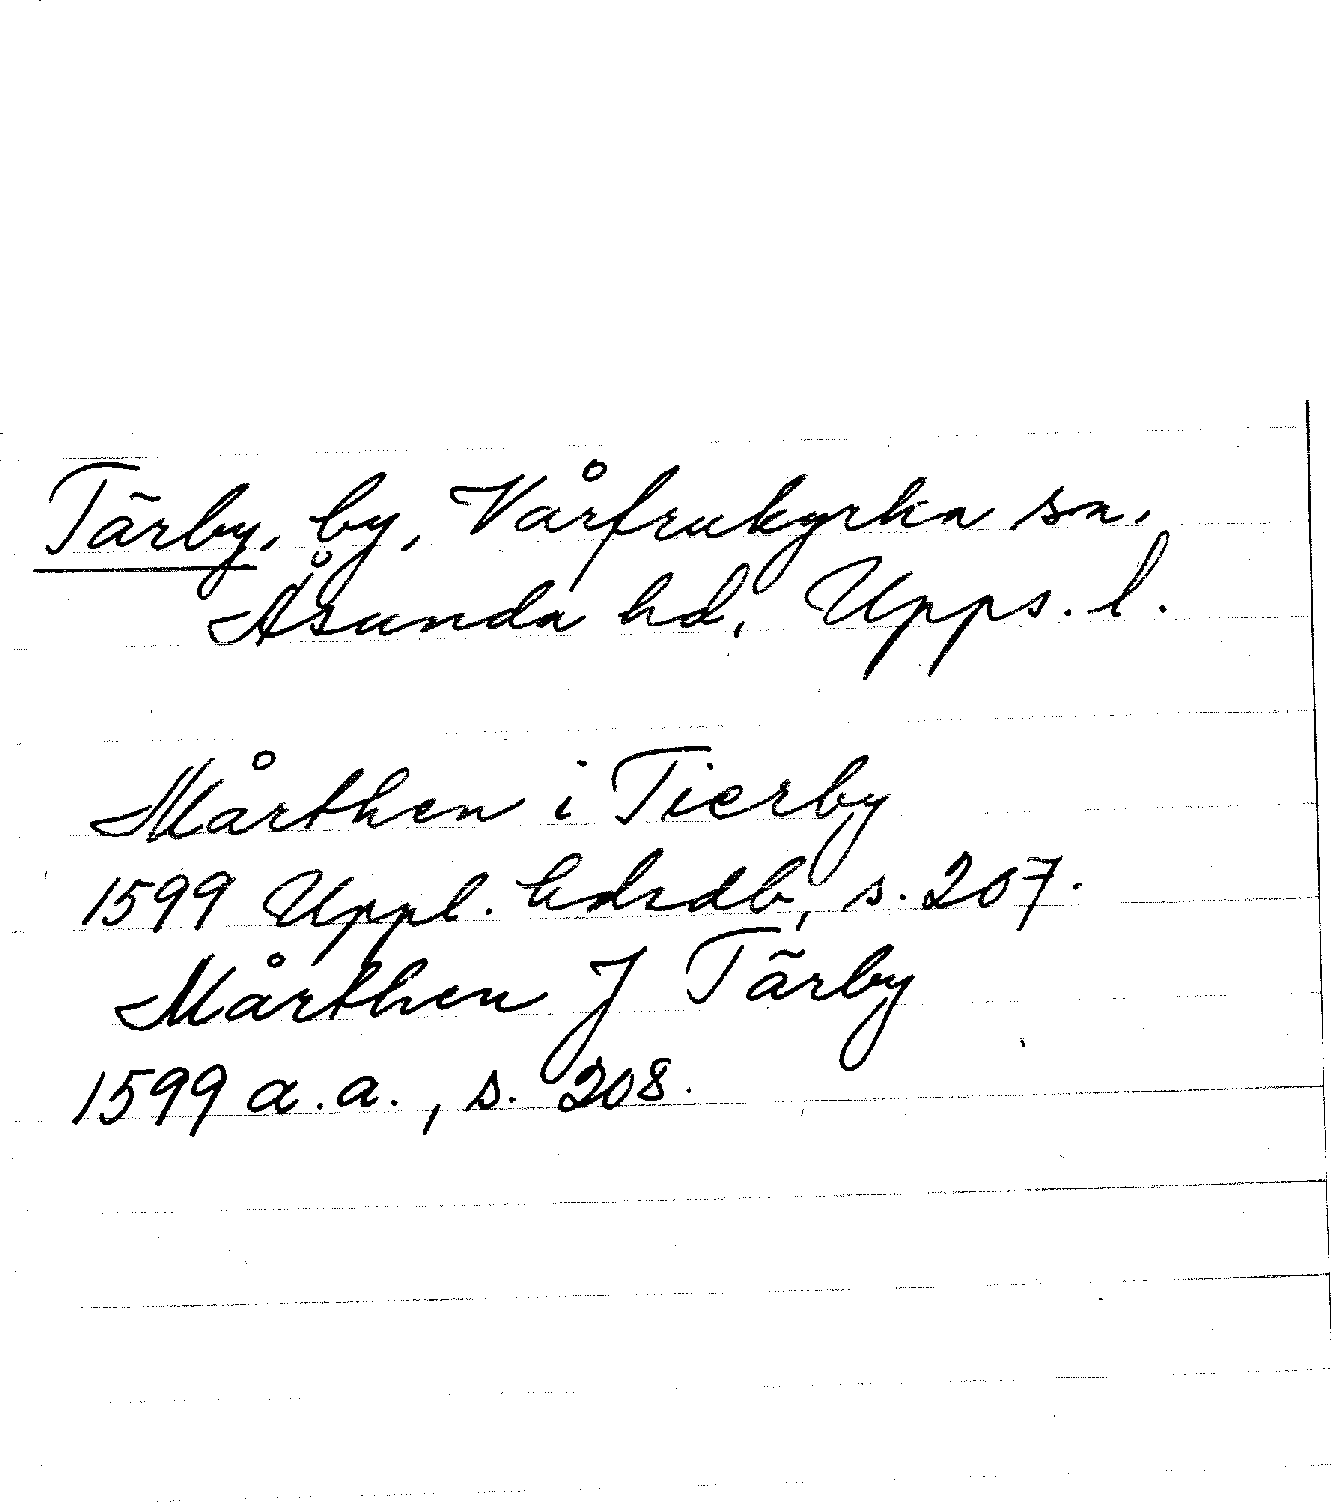 Tärby, by, Vårfrukyrka sn,
Åsunda hd, Upps. l.
Mårthen i Tierby
1599 Uppl. hdrdb, s. 207.
Mårthen J Tärby
1599 a.a., s. 208.